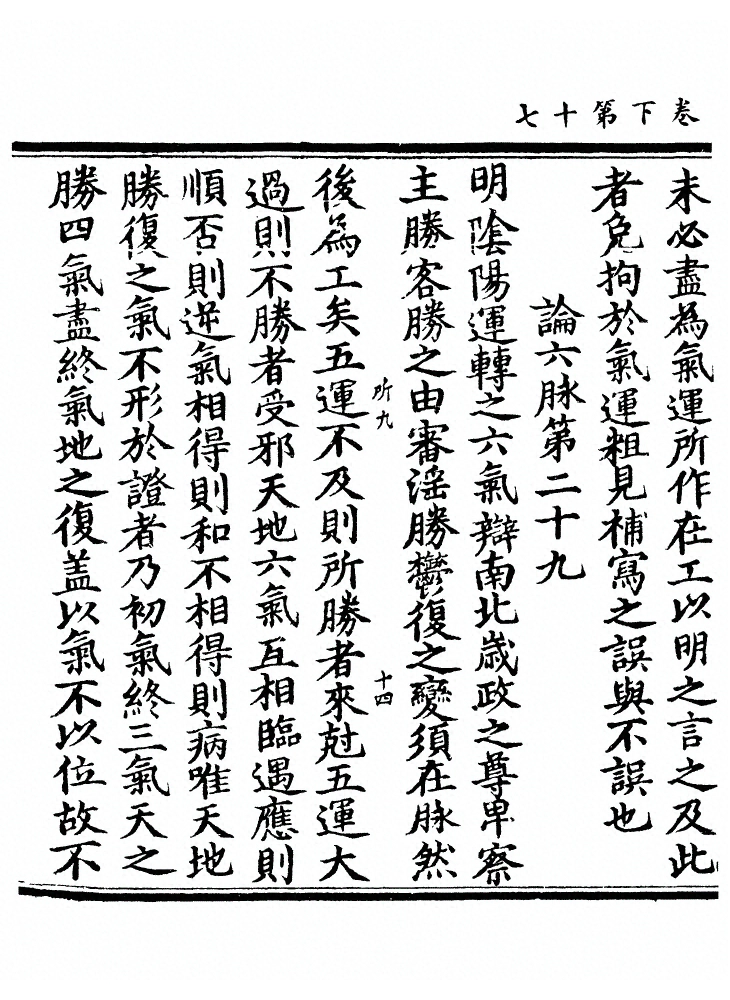 卷下第十七
未必盡為氣運所作在工以明之言之及此
者免拘於氣運粗見補寫之誤與不誤也
論六脉第二十九
明陰陽運轉之六氣辯南北歲政之尊卑察
主勝客勝之由審淫勝鬱復之變須在脉然
所九
十四
後為工矣五運不及則所勝者來尅五運大
過則不勝者受邪天地六氣互相臨遇應則
順否則逆氣相得則和不相得則病唯天地
勝復之氣不形於證者乃初氣終三氣天之
勝四氣盡終氣地之復盖以氣不以位故不